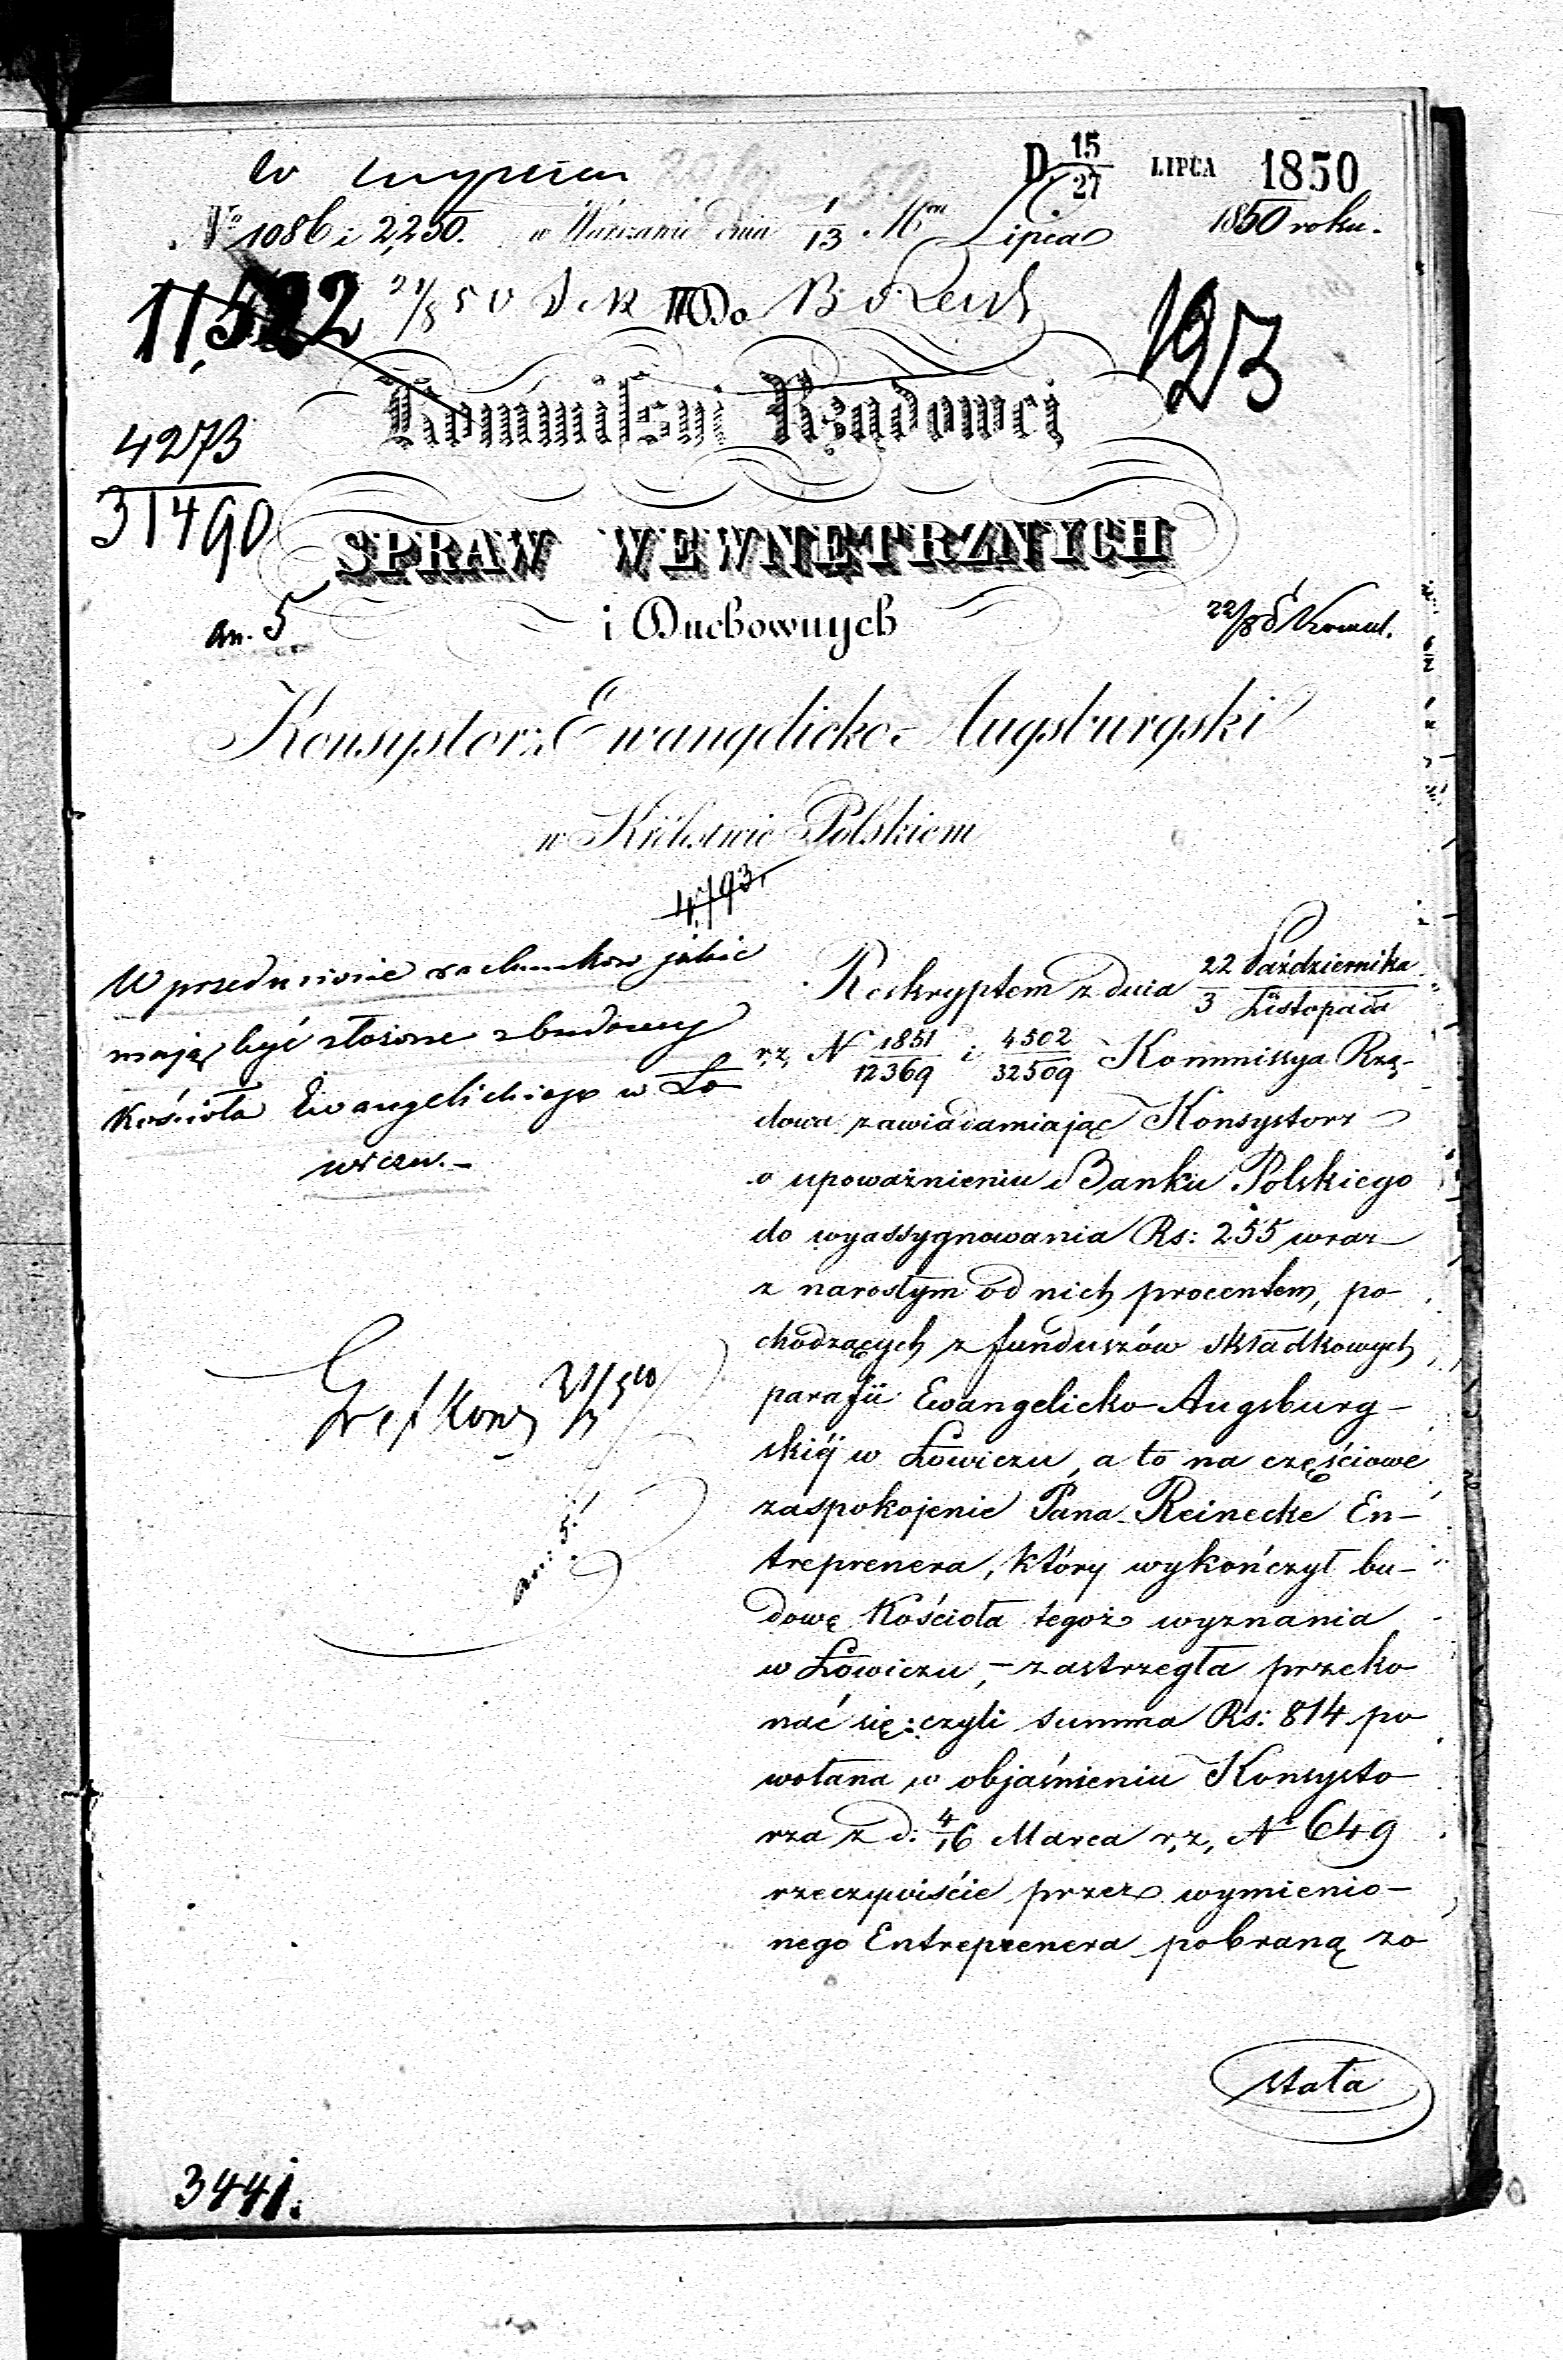 D. 15/27 LIPCA 1850
No 1086 i 2,250. w Warszawie dnia 1/13 Mca Lipca 1850 roku.
11,522
Do
123
Kommissyi Rządowéj
4273
31490
SPRAW WEWNĘTRZNYCH
i Duchownych
an. 5
Konsystorz Ewangelicko-Augsburgski
w Królestwie Polskiem
4,793.
W przedmiocie rachunków jakie
mają być złożone z budowy
Kościoła Ewangelickiego w Ło
wiczu.-
21/8
an: 5.
Reskryptem z dnia 22 Października/3 Listopada
r. z. N 1851/12369 i 4502/32509 Kommissya Rzą-
dowa zawiadamiając Konsystorz
o upoważnieniu Banku Polskiego
do wyassygnowania Rs: 255 wraz
z narosłym od nich procentem, po
chodzących z funduszów składkowych
parafii Ewangelicko-Augsburg-
skiéj w Łowiczu, a to na częściowe
zaspokojenie Pana Reinecke En-
treprenera, który wykończył bu-
dowę Kościoła tegoż wyznania
w Łowiczu, - zastrzegła przeko
nać się: czyli summa Rs: 814 po
wołana w objaśnieniu Konsysto
rza z d. 4/16 Marca r. z. No 649
rzeczywiście przez wymienio-
nego Entreprenera pobraną zo
stała
3441.